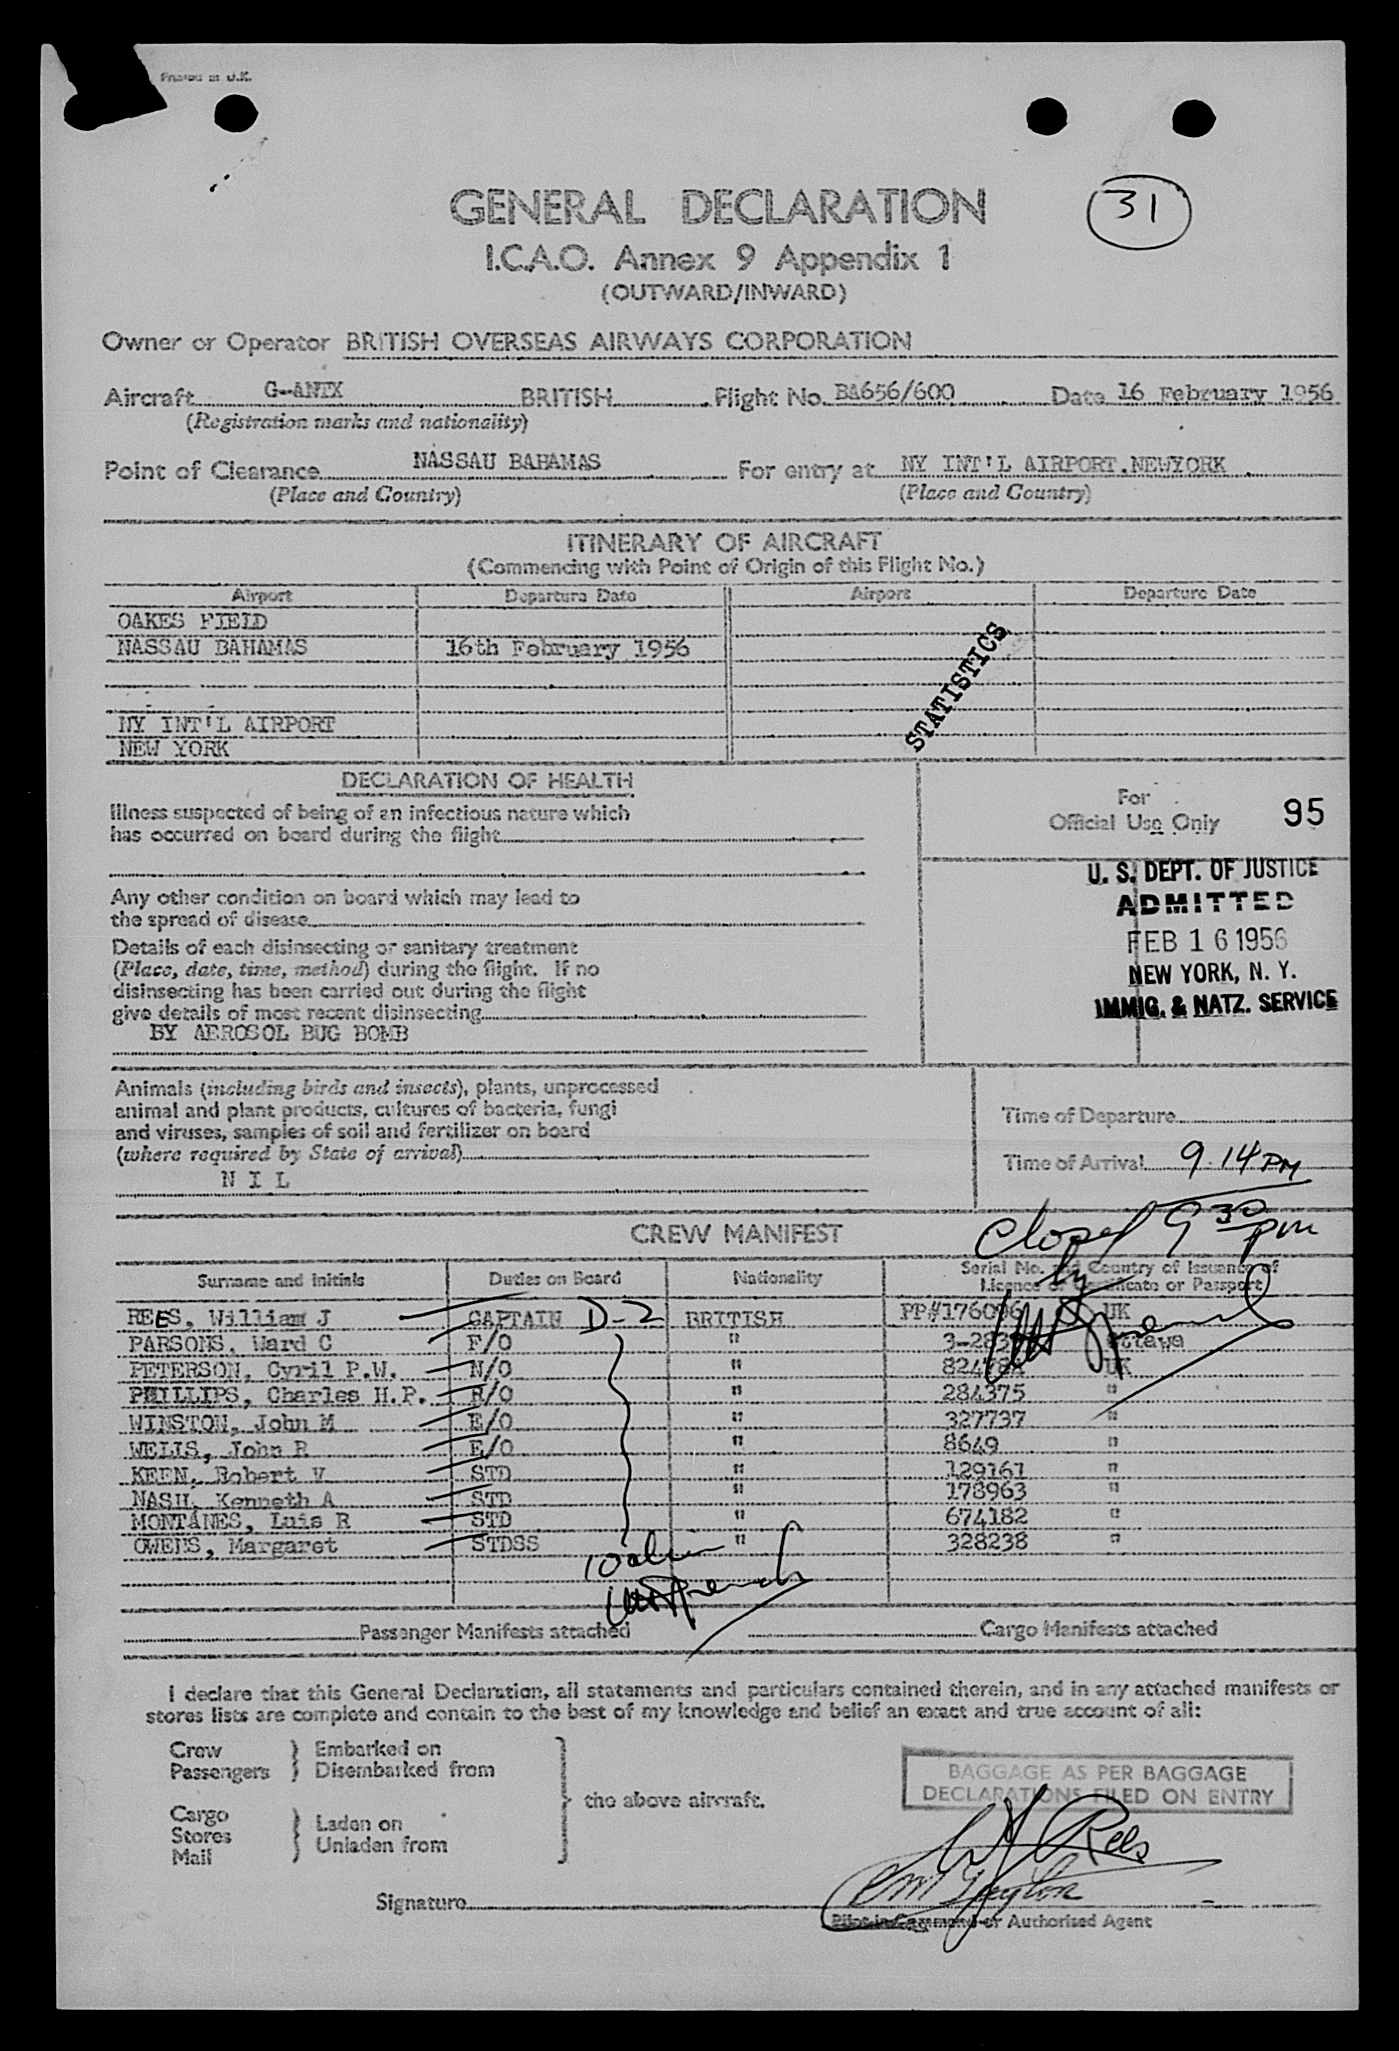 Printed in U.K.
31
GENERAL DECLARATION
I.C.A.O. Annex 9 Appendix 1
(OUTWARD/INWARD)
Owner or Operator BRITISH OVERSEAS AIRWAYS CORPORATION
Aircraft G-ANTX BRITISH Flight No. BA656/600 Date 16 February 1956
(Registration marks and nationality)
Point of Clearance NASSAU BAHAMAS For entry at NY INT'L AIRPORT.NEWYORK
(Place and Country) (Place and Country)
ITINERARY OF AIRCRAFT
(Commencing with Point of Origin of this Flight No.)
Airport Departure Date Airport Departure Date
OAKES FIELD
NASSAU BAHAMAS 16th February 1956
STATISTICS
NY INT'L AIRPORT
NEW YORK
DECLARATION OF HEALTH
Illness suspected of being of an infectious nature which
has occurred on board during the flight
Any other condition on board which may lead to
the spread of disease
Details of each disinsecting or sanitary treatment
(Place, date, time, method) during the flight. If no
disinsecting has been carried out during the flight
give details of most recent disinsecting
BY AEROSOL BUG BOMB
For
Official Use Only 95
U. S. DEPT. OF JUSTICE
ADMITTED
FEB 16 1956
NEW YORK, N. Y.
IMMIG. & NATZ. SERVICE
Animals (including birds and insects), plants, unprocessed
animal and plant products, cultures of bacteria, fungi
and viruses, samples of soil and fertilizer on board
(where required by State of arrival)
N I L
Time of Departure
Time of Arrival 9.14 PM
Closed 9 30 pm
by
CREW MANIFEST
Surname and Initials Duties on Board Nationality Serial No. and Country of Issuance of
Licence or Certificate or Passport
REES, William J CAPTAIN D-2 BRITISH PP#176096 UK
PARSONS, Ward C F/O " Ottawa
PETERSON, Cyril P.W. N/O " UK
PHILLIPS, Charles H.P. R/O " 284375 "
WINSTON, John M E/O " 327737 "
WELLS, John R E/O " 8649 "
KEEN, Robert V STD " 129161 "
NASH, Kenneth A STD " 178963 "
MONTANES, Luis R STD " 674182 "
OWENS, Margaret STDSS " 328238 "
Passenger Manifests attached Cargo Manifests attached
I declare that this General Declaration, all statements and particulars contained therein, and in any attached manifests or
stores lists are complete and contain to the best of my knowledge and belief an exact and true account of all:
Crew Embarked on
Passengers Disembarked from
the above aircraft.
Cargo Laden on
Stores Unladen from
Mail
BAGGAGE AS PER BAGGAGE
DECLARATIONS FILED ON ENTRY
W J Rees
Signature
Pilot in Command or Authorised Agent